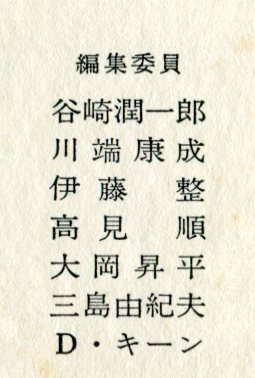 編集委員
谷崎潤一郎
川端康成
伊藤整
高見順
大岡昇平
三島由紀夫
D・キーン